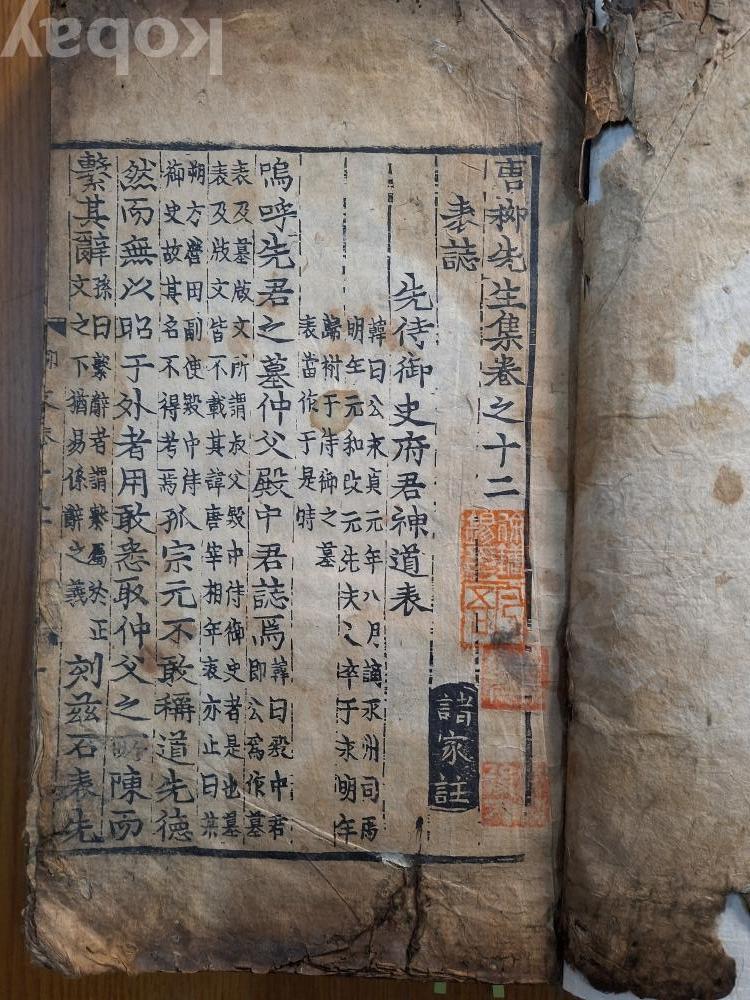 唐柳先生集卷之十二
表誌 諸家註
先侍御史府君神道表
韓曰公永貞元年八月謫永州司馬
明年元和改元先夫人卒于永明年
歸祔于侍御之墓
表當作于是時
嗚呼先君之墓仲父殿中君誌焉 韓曰殿中君
即公爲作墓
表及墓版文所謂叔父殿中侍御史者是也墓
表及版文皆不載其諱唐宰相年表亦止曰某
朔方營田副使殿中侍
御史故其名不得考焉
孤宗元不敢稱道先德
然而無以昭于外者用敢悉取仲父之 陳而
繫其辭 孫曰繫辭者謂繫屬於正
文之下猶易係辭之義
刻茲石表先
kobay